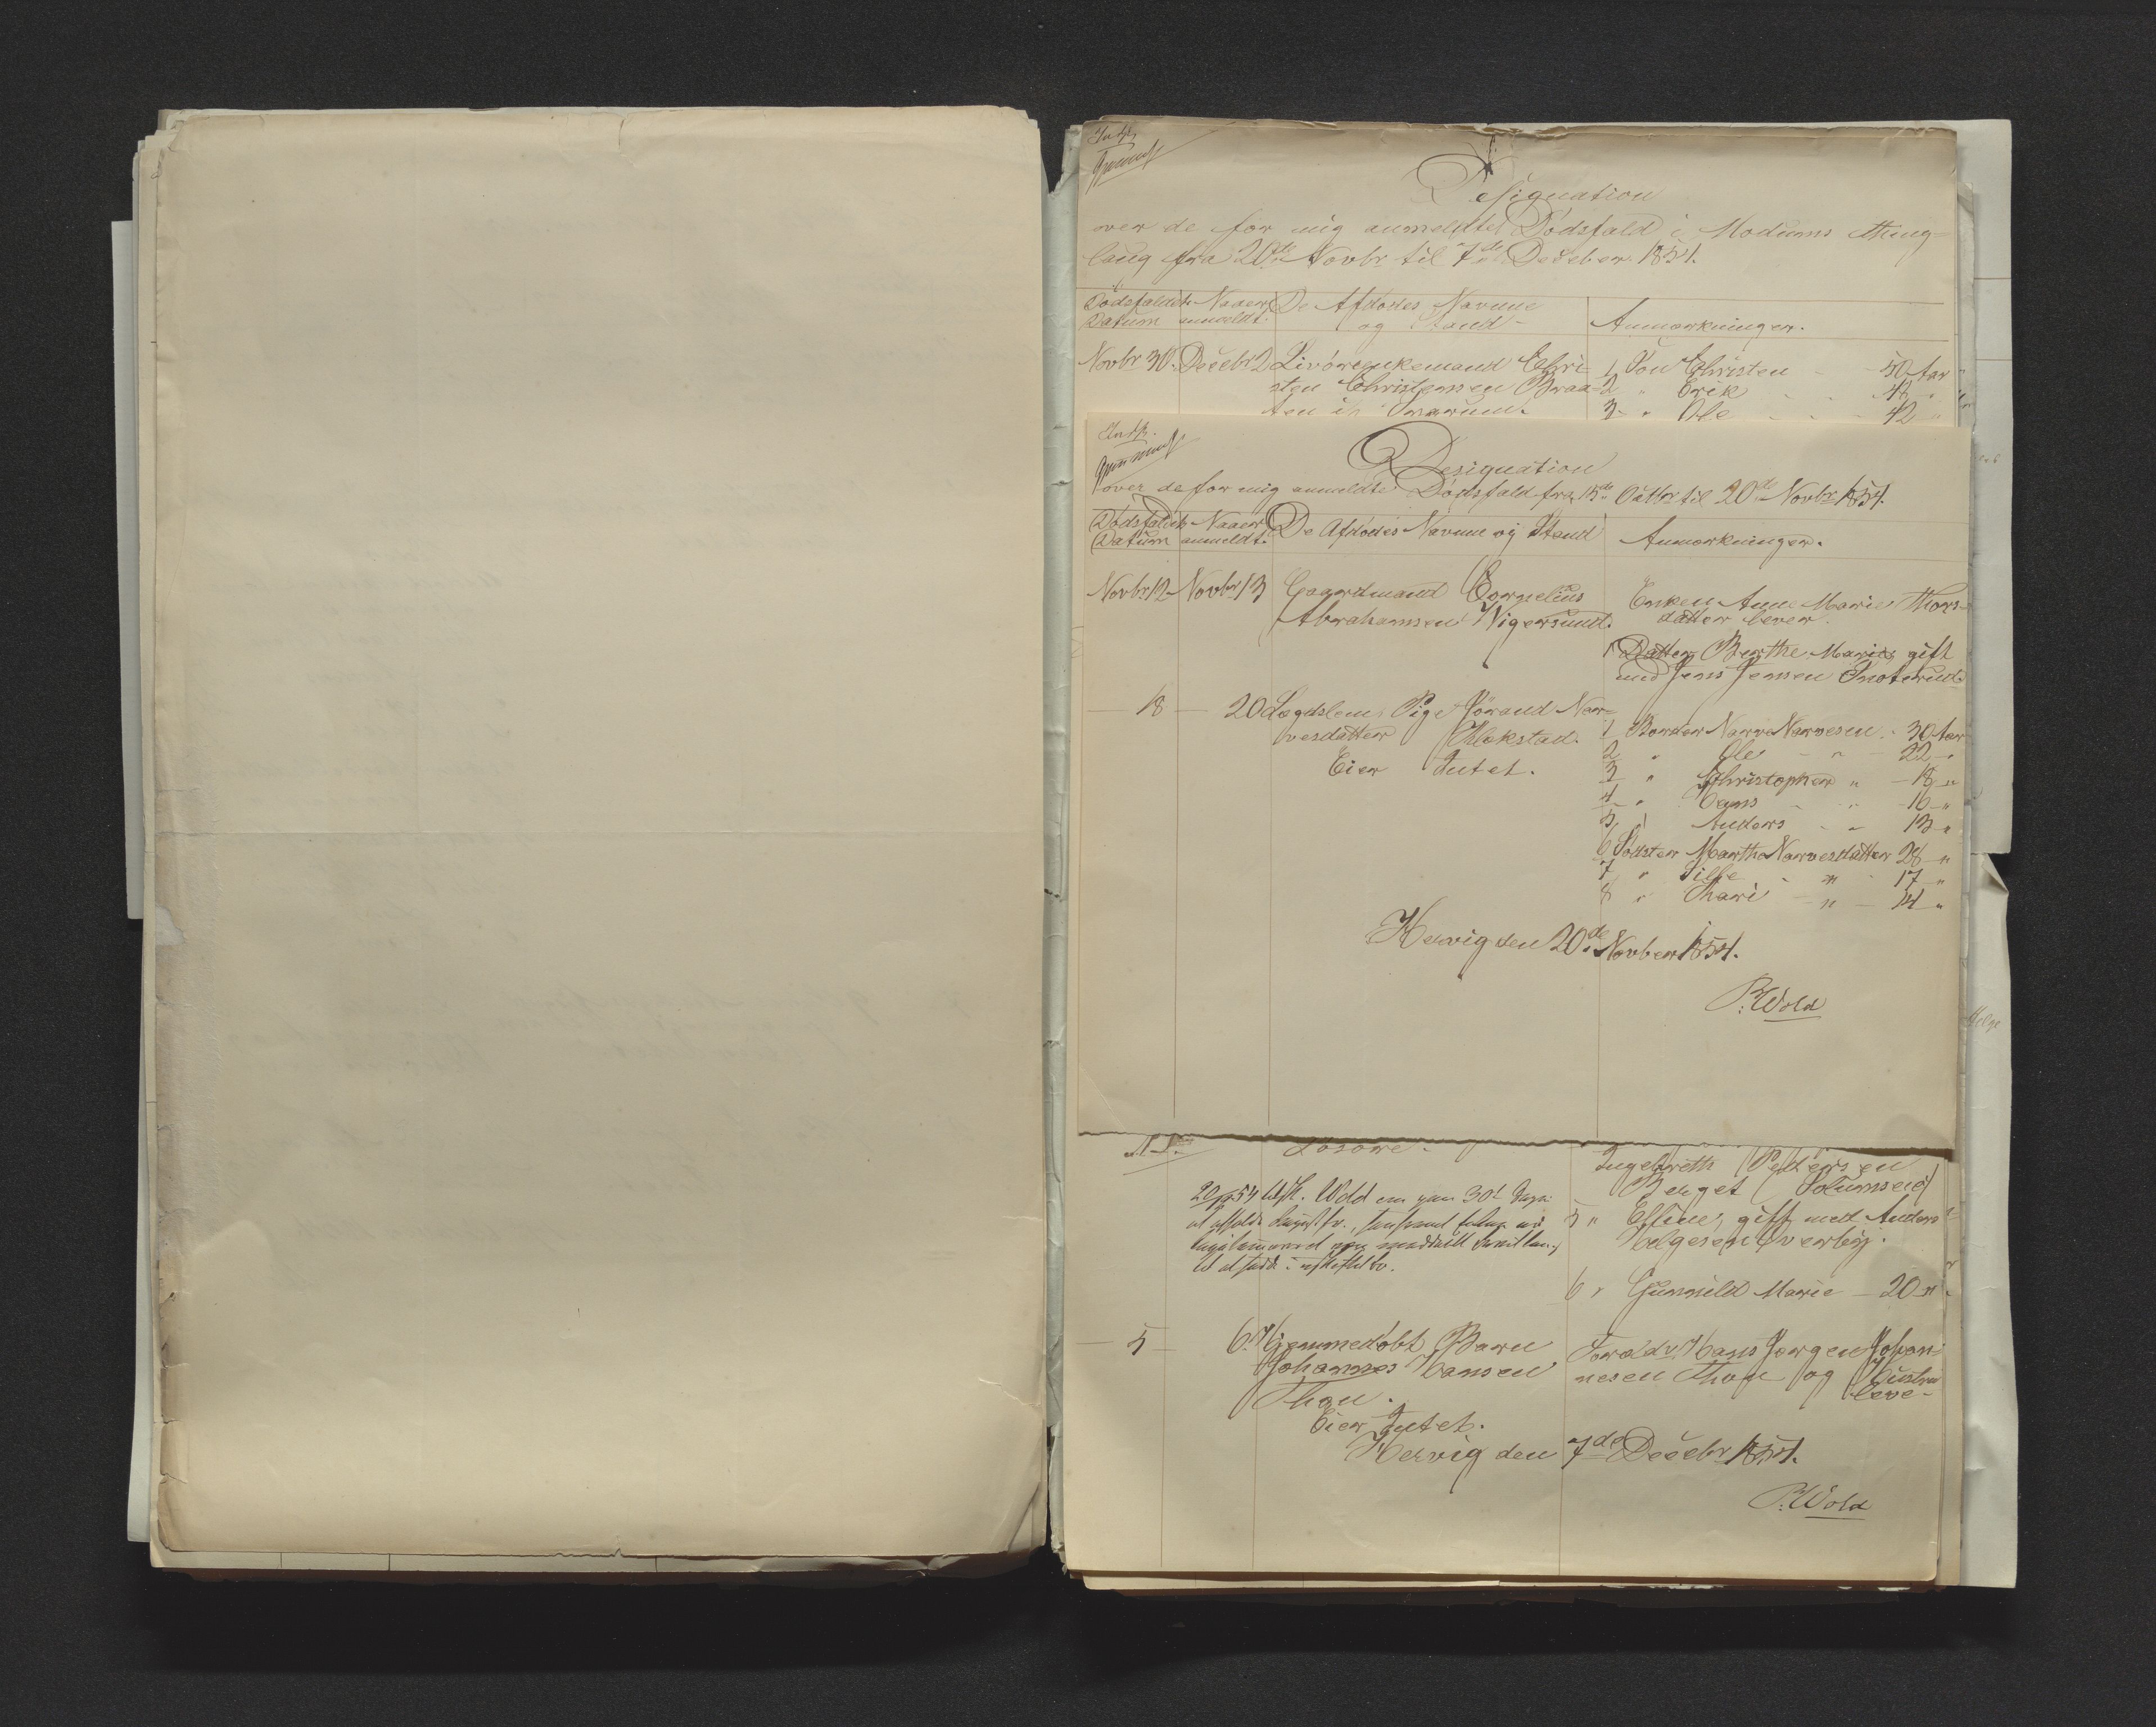 Designation
over de for mig anmeldte Dødsfald i Modums Thing=
laug fra 20de Novbr til 7de Deceber 1854.
Dødsfaldets Datum
Naaer anmeldt.
De Afdødes Navne og Stand
Anmærkninger.
Novbr 30. Decebr 2 Livørenkemand Chri=
sten Christensen Braa=
ten i Snarum.
1 Søn Christen - 50 Aar
2 " Erik
3 " Ole - - 42 "
Designation
over de for mig anmeldte Dødsfald fra 15de Octbr til 20de Novbr 1854.
Dødsfaldets Datum
Naaer anmeldt.
De Afdødes Navne og Stand
Anmærkninger.
Novbr 12 Novbr 13 Gaardmand Cornelius
Abrahamsen Wigersund.
Enken Anne Marie Thors=
datter lever.
1 Datter Berthe Marie, gift
med Jens Jensen
— 18 — 20 Lægdslem, Pige Jörand Nar=
vesdatter Klokstad.
Eier Intet.
1 Broder Narve Narvesen - 30 Aar
2 " Ole - " 22 "
3 " Christopher " - 18 "
4 " Hans - " - 16 "
5 " Anders - " 13 "
6 Sødster Marthe Narvesdatter 28 "
7 " Sille - " - 17 "
8 " Kari - " - 14 "
Hervig den 20de Novber 1854.
P. Wold
Ingebreth Pedersen
Berget (Solumseie)
5 " Elline, gift med Anders
Helgesen Øverby.
6 " Gunnild Marie - 20 "
— 5 — 6. Hjemmedøbt Barn
Johannes Hansen
Thon.
Eier Intet.
Forældr. Hans Jørgen Johan=
nesen Thon og Hustru
leve-
Hervig den 7de Decebr 1854.
P. Wold